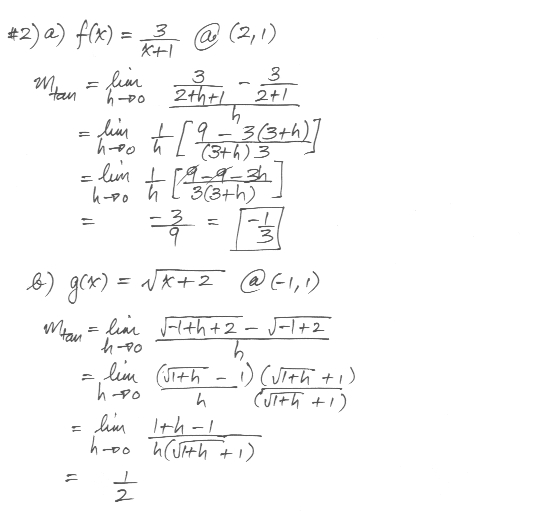 #2) a) f(x) = 3/(x+1) @ (2,1)
m_tan = lim h→0 (3/(2+h+1) - 3/(2+1))/h
= lim h→0 1/h [(9 - 3(3+h))/((3+h)3)]
= lim h→0 1/h [(9-9-3h)/(3(3+h))]
= -3/9 = -1/3
b) g(x) = √(x+2) @ (-1,1)
m_tan = lim h→0 (√(-1+h+2) - √(-1+2))/h
= lim h→0 (√(1+h) - 1)/h (√(1+h) + 1)/(√(1+h) + 1)
= lim h→0 (1+h-1)/(h(√(1+h) + 1))
= 1/2